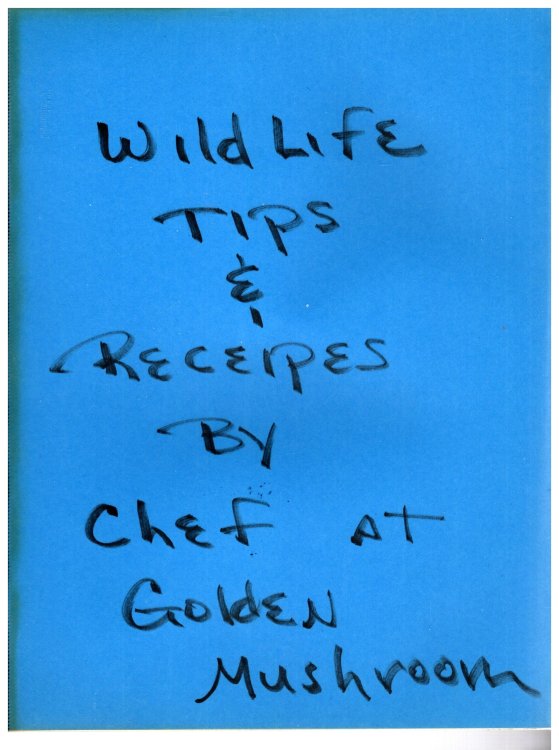 Wild Life
Tips
&
Receipes
By
Chef at
Golden
Mushroom